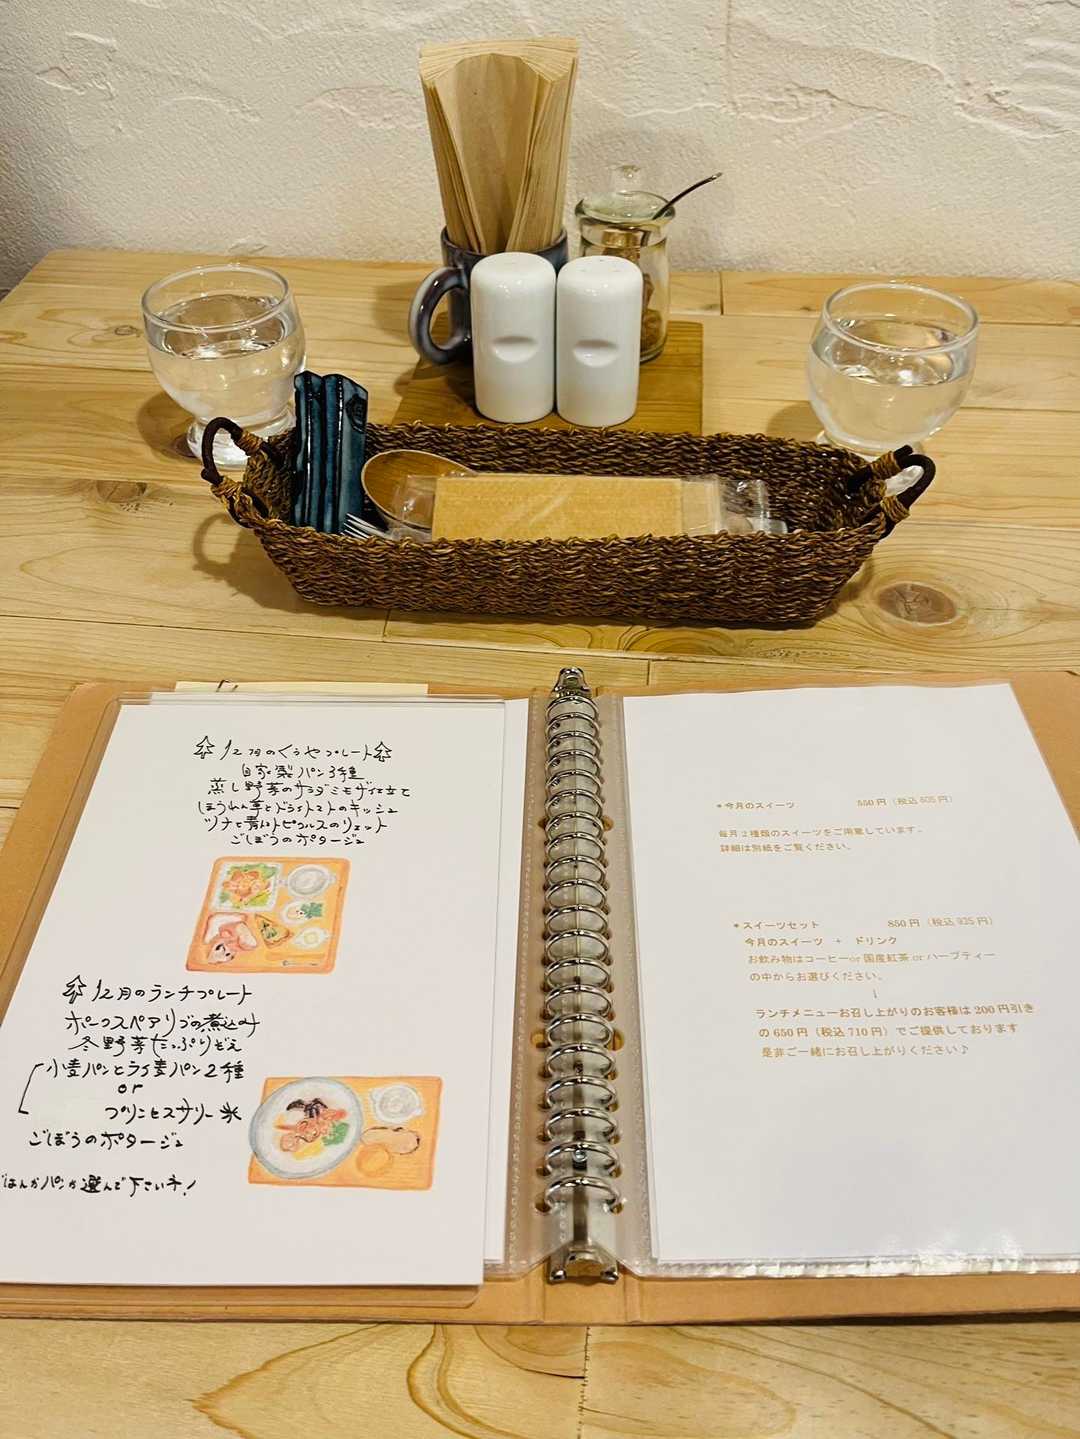 12月のくうやプレート
自家製パン3種
蒸し野菜のサラダミモザ仕立て
ほうれん草とドライトマトのキッシュ
ツナと青トマトピクルスのリエット
ごぼうのポタージュ
12月のランチプレート
ポークスペアリブの煮込み
冬野菜たっぷりぞえ
小麦パンとライ麦パン2種
or
プリンセスサリー米
ごぼうのポタージュ
ごはんかパンか選んで下さいネ!
*今月のスイーツ 550円(税込605円)
毎月2種類のスイーツをご用意しています。
詳細は別紙をご覧ください。
*スイーツセット 850円(税込935円)
今月のスイーツ + ドリンク
お飲み物はコーヒーor国産紅茶orハーブティー
の中からお選びください。
↓
ランチメニューお召し上がりのお客様は200円引き
の650円(税込710円)でご提供しております
是非ご一緒にお召し上がりください♪